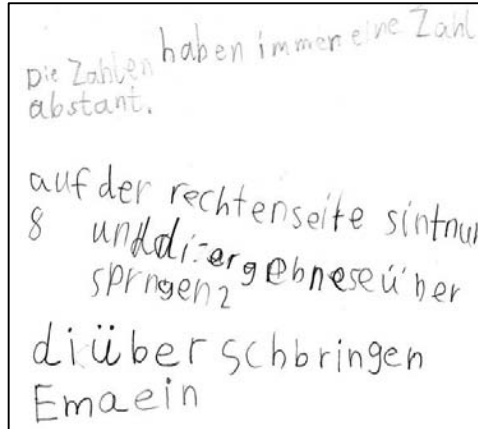 Die Zahlen haben immer eine Zahl
abstant.
auf der rechtenseite sintnur
8 unddi ergebnese über
sprngen 2
diüber schbringen
Emaein